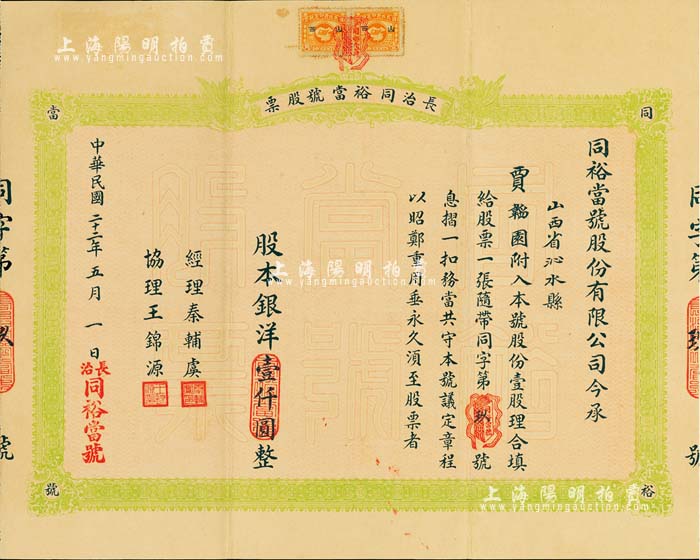 上海陽明拍賣
www.yangmingauction.com
山西
山西
長治同裕當號股票
同
裕
當
號
同裕當號股份有限公司今承
山西省沁水縣
賈 園附入本號股份壹股理合填
給股票一張隨帶同字第玖號
息摺一扣務當共守本號議定章程
以昭鄭重用垂永久須至股票者
股本銀洋壹仟圓整
經理秦輔虞
協理王錦源
中華民國二十二年五月一日
長治
同裕當號
同字第玖號
同字第玖號
上海陽明拍賣
www.yangmingauction.com
上海陽明拍賣
www.yangmingauction.com